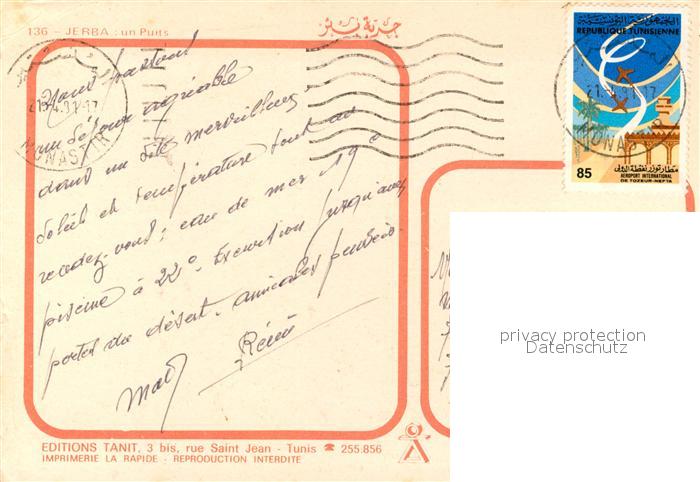 136 - JERBA : un Puits
جربة بئر
Nous passons
un séjour agréable
dans un site merveilleux.
Soleil et température sont au
rendez-vous: eau de mer 19°
piscine à 22°. Excursion jusqu'aux
portes du désert. amicales pensées
Rémi
MONASTIR
21.4.91
REPUBLIQUE TUNISIENNE
85
مطار توزر نفطة الدولي
AEROPORT INTERNATIONAL
DE TOZEUR-NEFTA
privacy protection
Datenschutz
EDITIONS TANIT, 3 bis, rue Saint Jean - Tunis ☎ 255.856
IMPRIMERIE LA RAPIDE - REPRODUCTION INTERDITE